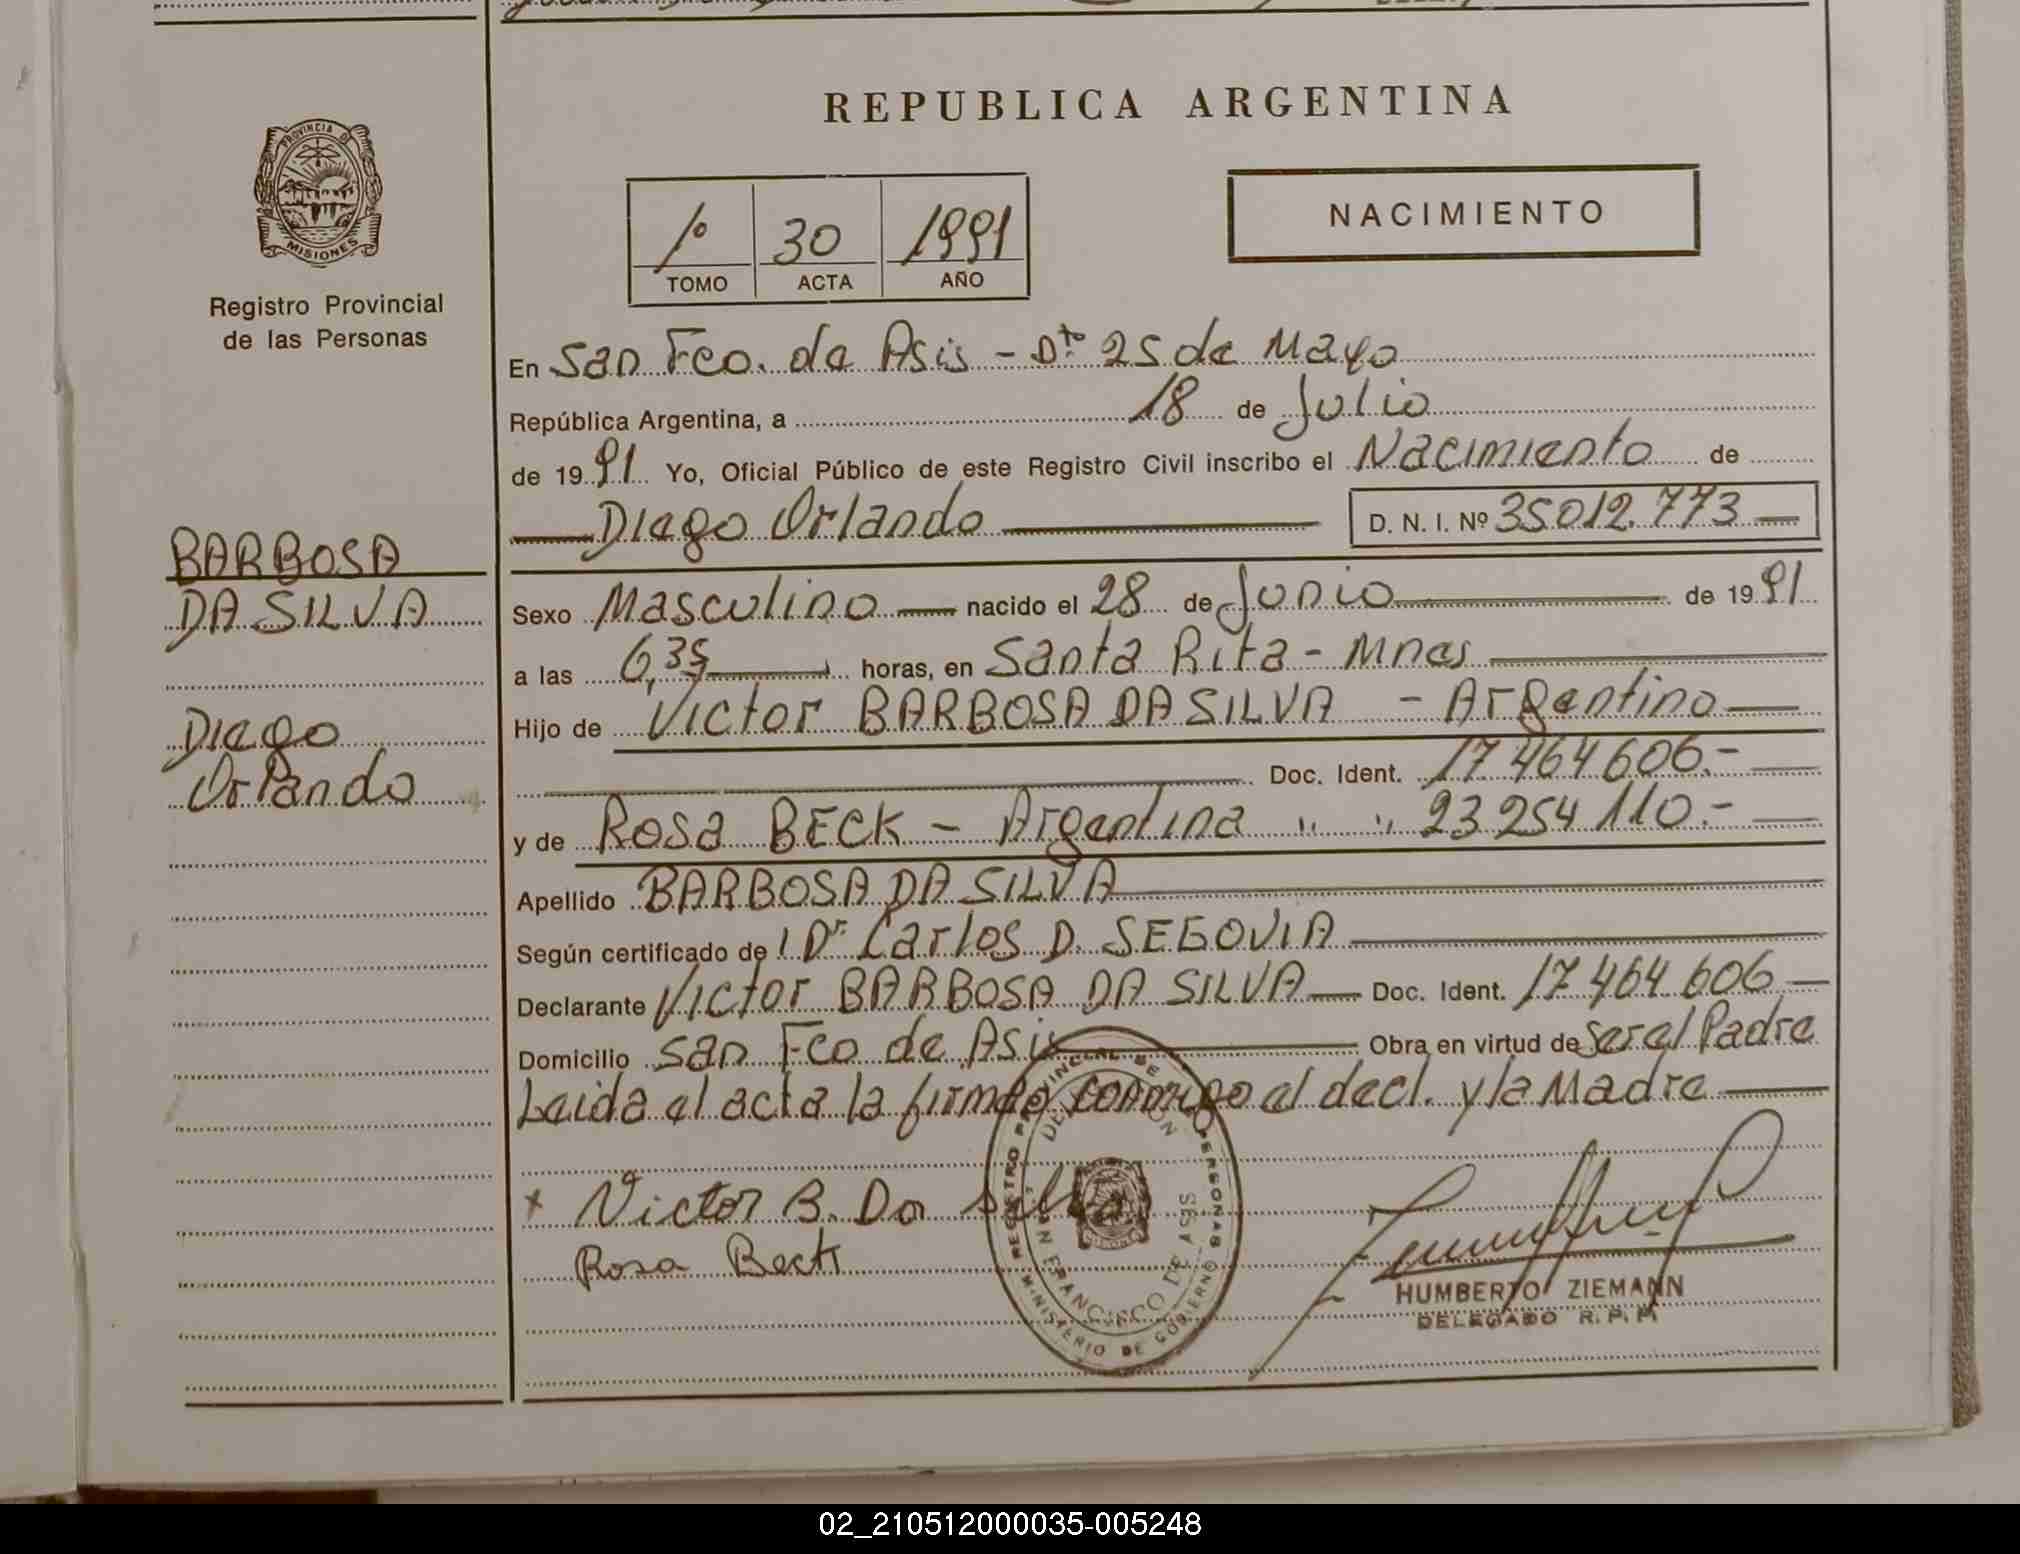 REPUBLICA ARGENTINA
PROVINCIA D
MISIONES
Registro Provincial
de las Personas
1º 30 1991
TOMO ACTA AÑO
NACIMIENTO
En San Fco. de Asis - Dto. 25 de Mayo
República Argentina, a 18 de Julio
de 1991 Yo, Oficial Público de este Registro Civil inscribo el Nacimiento de
Diego Orlando D. N. I. Nº 35012.773
BARBOSA
DA SILVA
Diego
Orlando
Sexo Masculino nacido el 28 de Junio de 1991
a las 6,35 horas, en Santa Rita - Mnes
Hijo de Victor BARBOSA DA SILVA - Argentino
Doc. Ident. 17 464 606.-
y de Rosa BECK - Argentina " " 23 254 110.-
Apellido BARBOSA DA SILVA
Según certificado de Dr. Carlos D. SEGOVIA
Declarante Victor BARBOSA DA SILVA Doc. Ident. 17 464 606
Domicilio San Fco de Asis Obra en virtud de ser el Padre
Leida el acta la firman conmigo el decl. y la Madre
x Victor B. Da Silva
Rosa Beck
REGISTRO PROVINCIAL DE PERSONAS
MINISTERIO DE GOBIERNO
DELEGACION
FRANCISCO DE ASES
HUMBERTO ZIEMANN
DELEGADO R. P. M
02_210512000035-005248